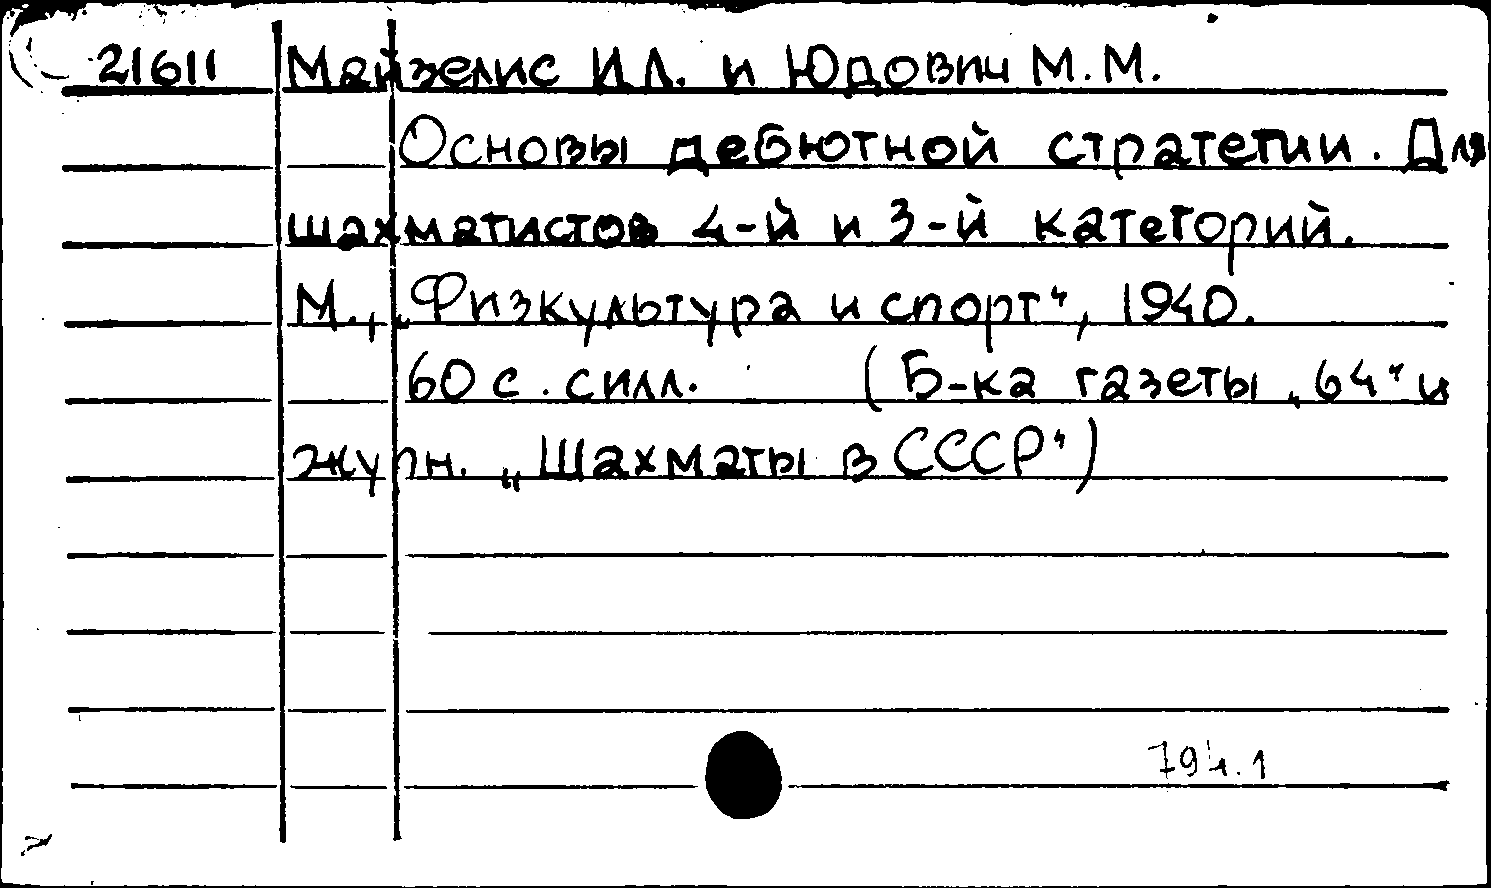 21611 Майзелис И.Л. и Юдович М.М.
Основы дебютной стратегии. Для
шахматистов 4-й и 3-й категорий.
М., „Физкультура и спорт“, 1940.
60 с. силл. (Б-ка газеты „64“ и
журн. „Шахматы в СССР“)
794.1